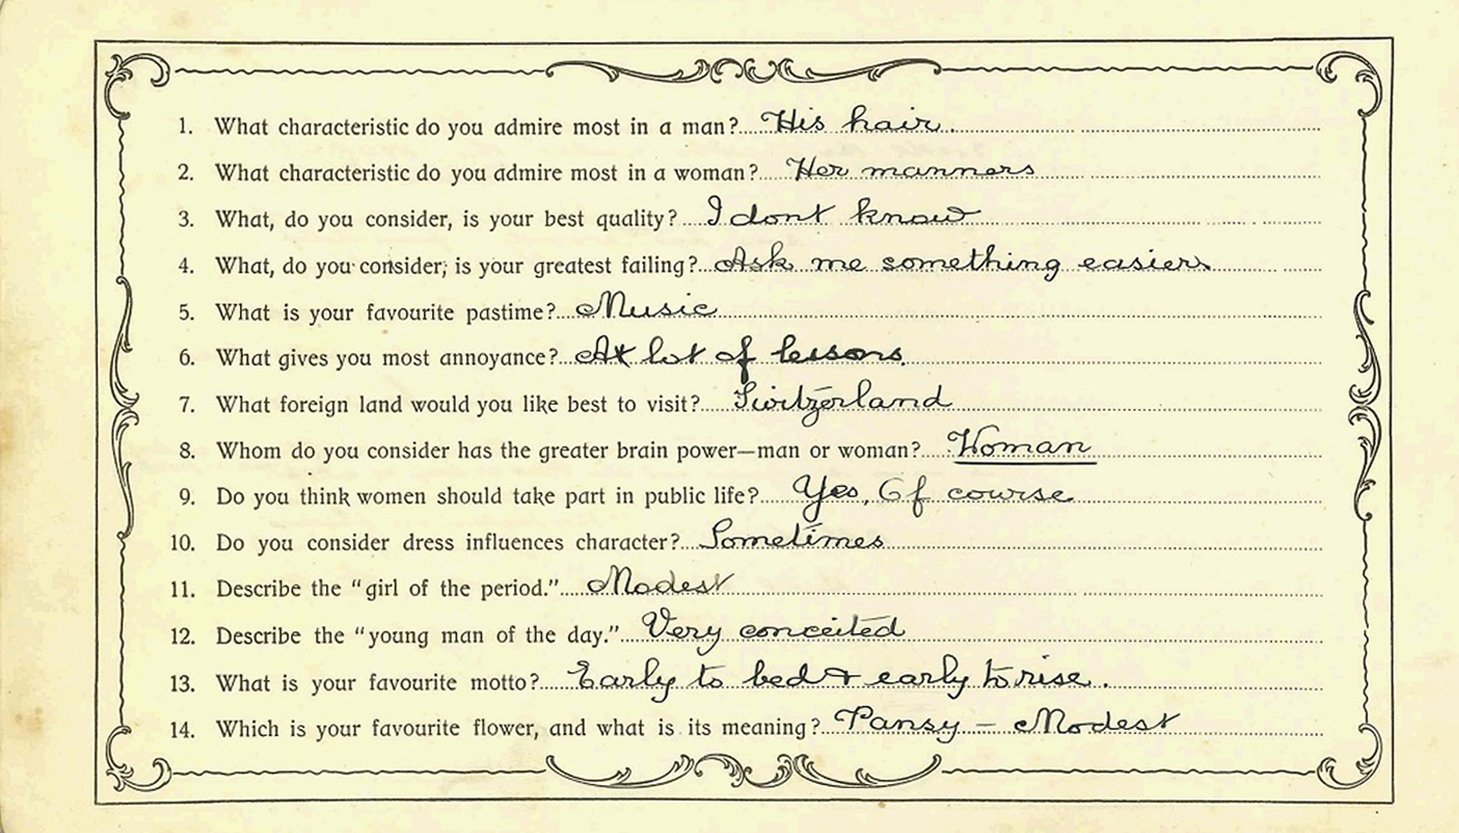 1. What characteristic do you admire most in a man? His hair.
2. What characteristic do you admire most in a woman? Her manners
3. What, do you consider, is your best quality? I dont know
4. What, do you consider, is your greatest failing? Ask me something easier
5. What is your favourite pastime? Music
6. What gives you most annoyance? A lot of lessons.
7. What foreign land would you like best to visit? Switzerland
8. Whom do you consider has the greater brain power—man or woman? Woman
9. Do you think women should take part in public life? Yes, Of course
10. Do you consider dress influences character? Sometimes
11. Describe the "girl of the period." Modest
12. Describe the "young man of the day." Very conceited
13. What is your favourite motto? Early to bed & early to rise.
14. Which is your favourite flower, and what is its meaning? Pansy – Modest